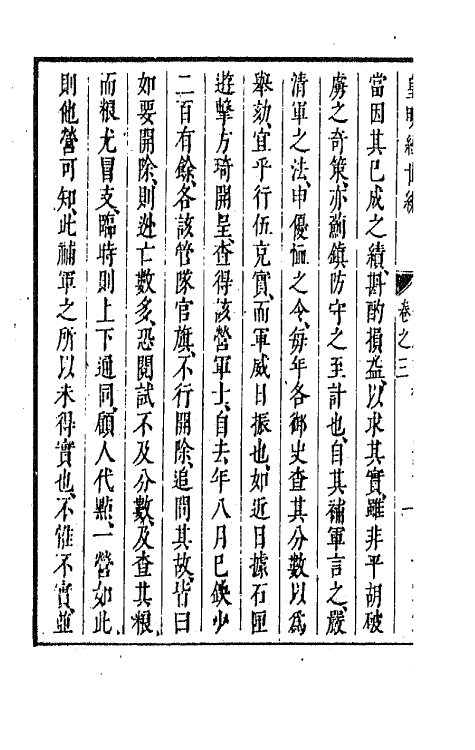 皇明經世編
卷之三
當因其已成之績、斟酌損益、以求其實、雖非平胡破
虜之奇策、亦薊鎮防守之至計也、自其補軍言之、嚴
清軍之法、申優恤之令、每年各御史查其分數以爲
舉劾、宜乎行伍克實、而軍威日振也、如近日據石匣
遊擊方琦開呈、查得該營軍士、自去年八月已缺少
二百有餘、各該管隊官旗、不行開除、追問其故、皆曰
如要開除、則逃亡數多、恐閱試不及分數、及查其粮、
而粮尤冒支、臨時則上下通同、顧人代點、一營如此
則他營可知、此補軍之所以未得實也、不惟不實、並